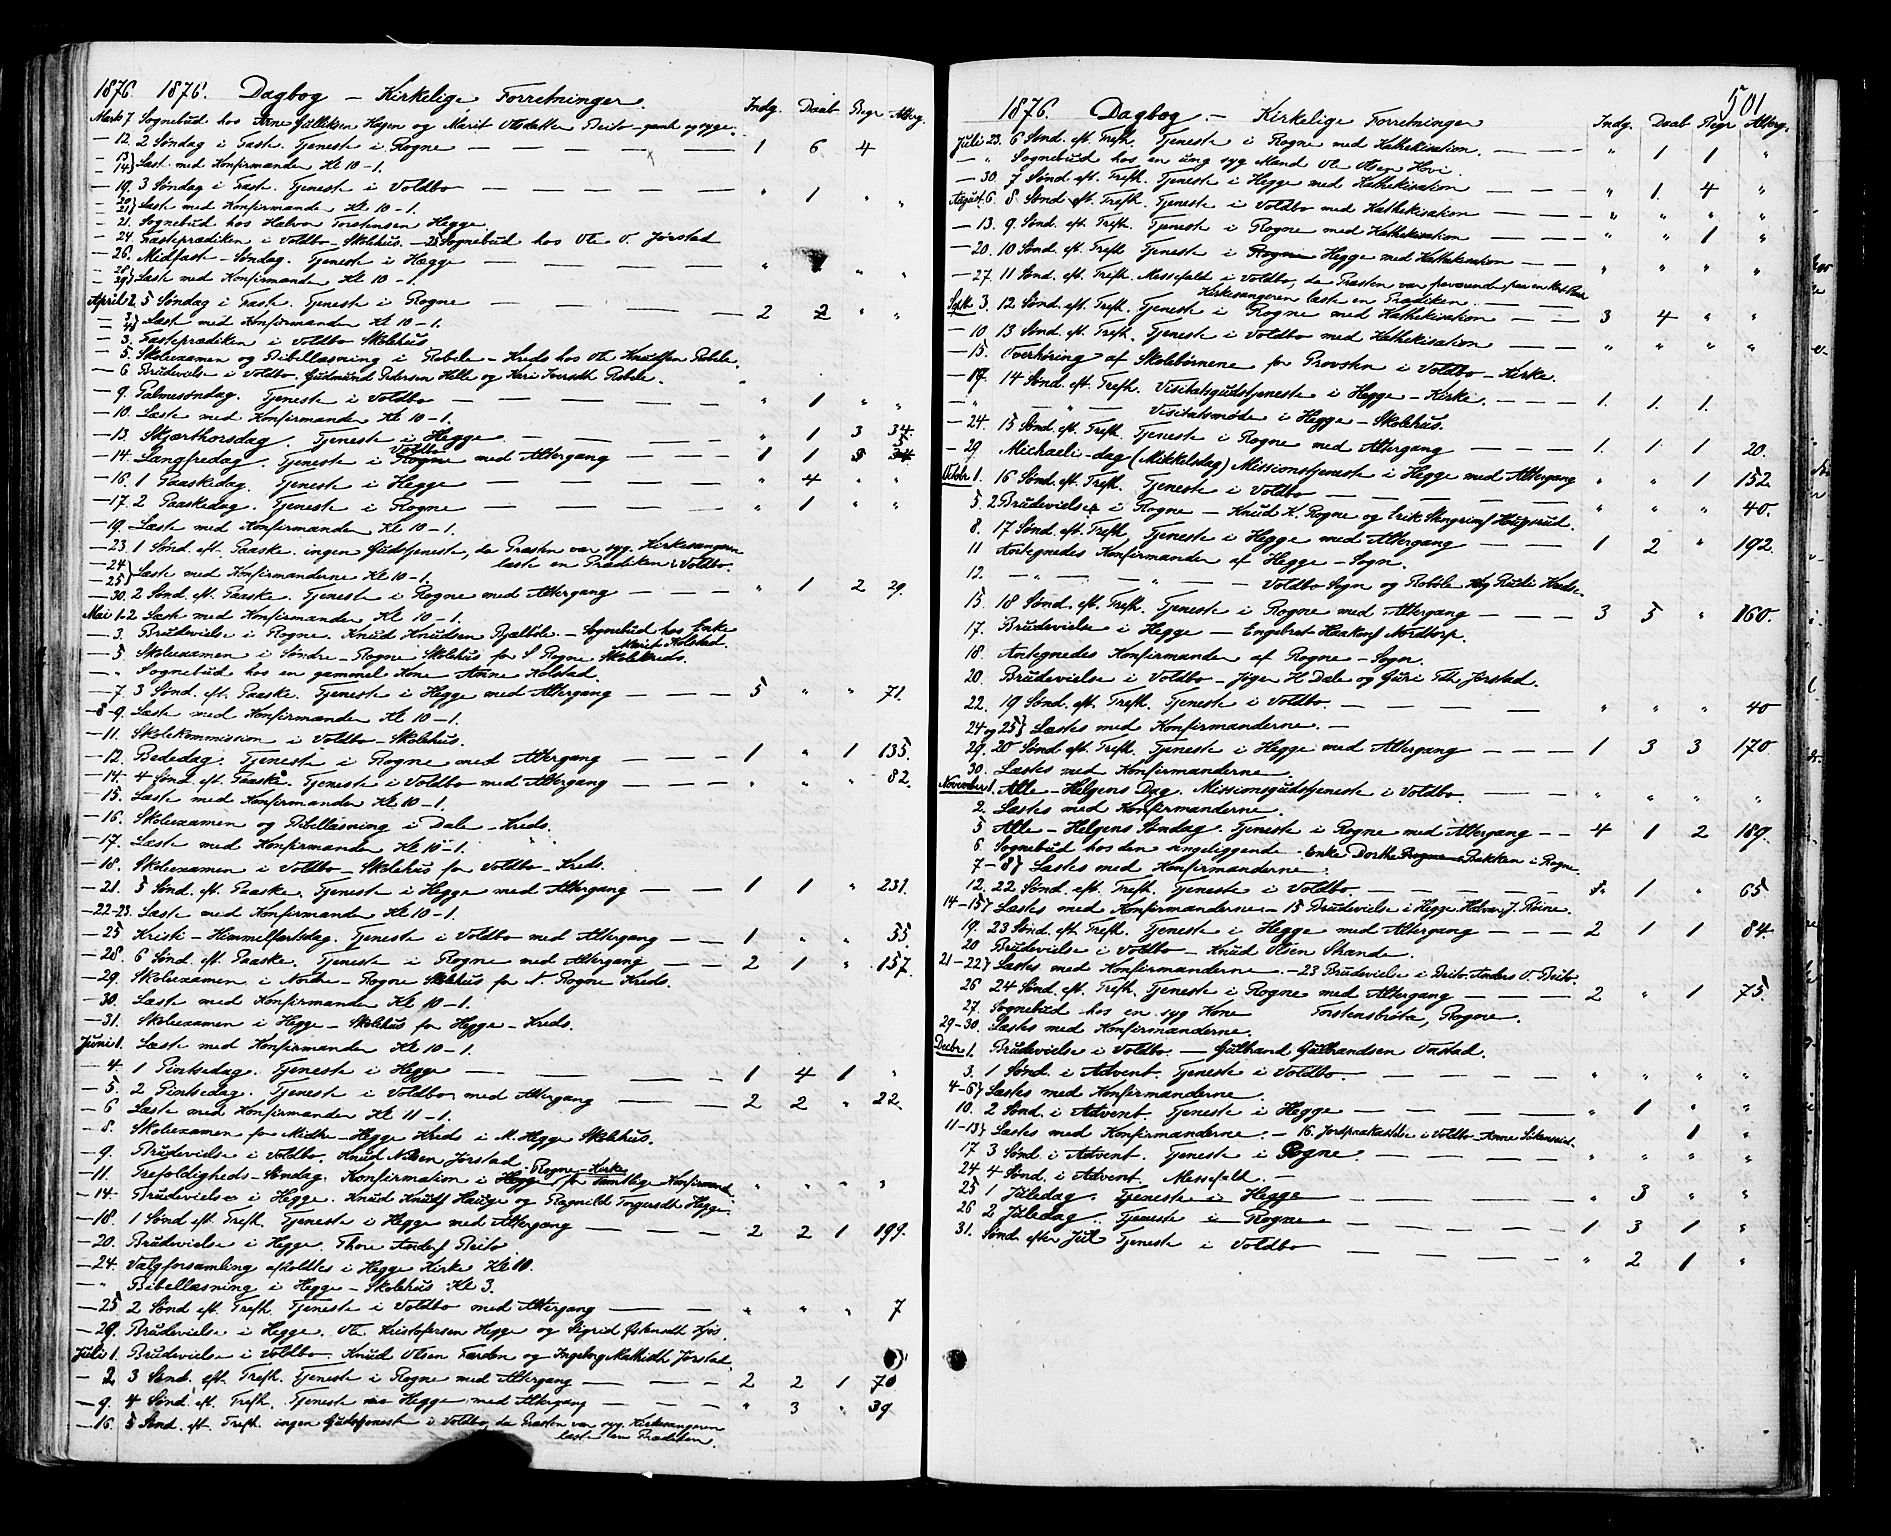 1876. 1876. Dagbog – Kirkelige Forretninger. Indg. Daab Begr Alterg.
Marts 7 Sognebud hos Arne Gulliksen Høyen og Marit Olsdatter Beito – gamle og syge.
– 12. 2 Søndag i Fast. Tjeneste i Rogne — — — 1 6 4
– 13 14} Læst med Konfirmander Kl 10–1.
– 19. 3 Søndag i Fast. Tjeneste i Voldbo — — — " 1 " "
– 20 21} Læst med Konfirmander Kl 10–1.
– 21. Sognebud hos Halvor Torstensen Hegge.
– 24. Fasteprædiken i Voldbo – Skolehus. – 25 Sognebud hos Ole O. Jørstad
– 26. Midfast – Søndag. Tjeneste i Hegge — — — " " "
– 28 29} Læst med Konfirmander Kl 10–1.
April 2. 5 Søndag i Fast. Tjeneste i Rogne — — — 2 2 " "
– 3 4} Læst med Konfirmander Kl 10–1.
– 3. Fasteprædiken i Voldbo Skolehus
– 5. Skoleexamen og Bibellæsning i Robøle – Kreds hos Ole Knudsen Robøle.
– 6 Brudevielse i Voldbo. Gudmund Pedersen Helle og Kari Iversdt Robøle.
– 9. Palmesøndag. Tjeneste i Voldbo — — — " 1 " "
– 10. Læst med Konfirmander Kl 10–1.
– 13. Skjærthorsdag. Tjeneste i Hegge — — " 1 3 34.
– 14. Langfredag. Tjeneste i Rogne Voldbo med Altergang — — 1 1
– 16. 1 Paaskedag. Tjeneste i Hegge — — — " 4 " "
– 17. 2 Paaskedag. Tjeneste i Rogne — — — " 1 " "
– 19. Læst med Konfirmander Kl 10–1.
– 23. 1 Sønd. eft. Paaske. ingen Gudstjeneste, da Præsten var syg. Kirkesangeren
læste en Prædiken i Voldbo.
– 24 25} Læst med Konfirmanderne Kl 10–1.
– 30. 2 Sønd. eft. Paaske. Tjeneste i Rogne med Altergang — — — " 1 2 29.
Mai 1–2 Læst med Konfirmander Kl 10–1.
– 3. Brudevielse i Rogne. Knud Knudsen Bjelbøle. – Sognebud hos Enke
Marit Kolstad.
– 5 Skoleexamen i Søndre – Rogne Skolehus for S. Rogne Skolekreds.
– " Sognebud hos en gammel Kone Anne Kolstad.
– 7. 3 Sønd. eft. Paaske. Tjeneste i Hegge med Altergang — — — 5 " " 71.
– 8–9. Læst med Konfirmander Kl 10–1.
– 11. Skolekommission i Voldbo – Skolehus.
– 12. Bededag. Tjeneste i Rogne med Altergang — — — 1 " 1 135.
– 14. 4 Sønd. eft. Paaske. Tjeneste i Voldbo med Altergang — — — " " " 82.
– 15. Læst med Konfirmander Kl 10–1.
– 16. Skoleexamen og Bibellæsning i Dale – Kreds.
– 17. Læst med Konfirmander Kl 10–1.
– 18. Skoleexamen i Voldbo – Skolehus for Voldbo – Kreds.
– 21. 5 Sønd. eft. Paaske. Tjeneste i Hegge med Altergang — — 1 1 " 231.
– 22–23. Læst med Konfirmander Kl 10–1.
– 25 Kristi – Himmelfartsdag. Tjeneste i Voldbo med Altergang — — 1 " " 35.
– 28. 6 Sønd. eft. Paaske. Tjeneste i Rogne med Altergang — — 2 1 " 157.
– 29. Skoleexamen i Nordre – Rogne Skolehus for N. Rogne Kreds.
– 30. Læst med Konfirmander Kl 10–1.
– 31. Skoleexamen i Hegge – Skolehus for Hegge – Kreds.
Juni 1. Læst med Konfirmander Kl 10–1.
– 4. 1 Pintsedag. Tjeneste i Hegge — — — 1 4 1 "
– 5. 2 Pintsedag. Tjeneste i Voldbo med Altergang — — — 2 2 " 22.
– 6 Læst med Konfirmander Kl 11–1.
– 8. Skoleexamen for Midtre – Hegge Kreds i M. Hegge Skolehus.
– 9. Brudevielse i Voldbo. Knud Nilsen Jørstad.
– 11. Trefoldigheds – Søndag. Konfirmation i Hegge Rogne – Kirke for samtlige Konfirmand. " " " "
– 14. Brudevielse i Hegge. Knud Knuds Hauge og Ragnild Torgersdt Hegge.
– 18. 1 Sønd eft. Trefh. Tjeneste i Hegge med Altergang — — — 2 2 1 199.
– 20. Brudevielse i Hegge. Thore Anders Beito
– 24. Valgforsamling afholdtes i Hegge Kirke Kl 10.
– " Bibellæsning i Hegge – Skolehus Kl 3.
– 25 2 Sønd eft. Trefh. Tjeneste i Voldbo med Altergang — — — " " " 7
– 29. Brudevielse i Hegge. Ole Kristofersen Hegge og Sigrid
Juli 1. Brudevielse i Voldbo. Knud Olsen Færden og Ingeborg Mathisdt Jørstad.
– 2 3 Sønd. eft. Trefh. Tjeneste i Rogne med Altergang — — — 2 2 1 70
– 9. 4 Sønd. eft. Trefh. Tjeneste i Hegge med Altergang — — — " 3 " 39
– 16. 5 Sønd. eft. Trefh. ingen Gudstjeneste i Voldbo, da Præsten var syg. Kirkesangeren
læste en Prædiken.
501
1876. Dagbog. – Kirkelige Forretninger Indg. Daab Begr Alterg.
Juli 23. 6 Sønd. eft. Trefh. Tjeneste i Rogne med Kathekisation. — — " 1 1 "
– " Sognebud hos en ung syg Mand Ole Olsen Hovi.
– 30. 7 Sønd. eft. Trefh. Tjeneste i Hegge med Kathekisation — — " 1. 4 "
August 6. 8 Sønd. eft. Trefh. Tjeneste i Voldbo med Kathekisation — — " " " "
– 13. 9. Sønd. eft. Trefh. Tjeneste i Rogne med Kathekisation — — " " 1 "
– 20. 10 Sønd. eft. Trefh. Tjeneste i Rogne Hegge med Kathekisation — — " " " "
– 27. 11 Sønd. eft. Trefh. Messefald i Voldbo, da Præsten var fraværende paa en
Kirkesangeren læste en Prædiken.
Septbr 3. 12 Sønd. eft. Trefh. Tjeneste i Rogne med Kathekisation — — 3 4 " "
– 10. 13 Sønd. eft. Trefh. Tjeneste i Voldbo med Kathekisation — — " " " "
– 15. Overhøring af Skolebørnene for Provsten i Voldbo – Kirke.
– 17. 14 Sønd. eft. Trefh. Visitatsgudstjeneste i Hegge – Kirke. — — 1. 1. 1.
– " – " – Visitatsmøde i Hegge – Skolehus.
– 24. 15 Sønd. eft. Trefh. Tjeneste i Rogne med Altergang — — 1. 1. 1 20.
– 29 Michaeli – dag (Mikkelsdag) Missionstjeneste i Hegge med Altergang " " 1 152
Oktbr 1. 16 Sønd. eft. Trefh. Tjeneste i Voldbo — — — " " " 40.
5. 2 Brudevielser i Rogne – Knud K. Rogne og Erik Stengrims Haugsrud.
8. 17 Sønd. eft. Trefh. Tjeneste i Hegge med Altergang — — 1 2 " 192.
11 Antegnedes Konfirmander af Hegge – Sogn.
12. — " — " — " — Voldbo Sogn og Robøle Kreds.
15. 18 Sønd. eft. Trefh. Tjeneste i Rogne med Altergang — — 3 5 " 160.
17. Brudevielse i Hegge – Engebret Haakons Nordtorp.
18. Antegnedes Konfirmander af Rogne – Sogn.
20. Brudevielse i Voldbo – H Dale og Guri Th. Jørstad.
22. 19 Sønd. eft. Trefh. Tjeneste i Voldbo. — — — " " " 40
24 og 25} Læstes med Konfirmanderne. —
29. 20 Sønd. eft. Trefh. Tjeneste i Hegge med Altergang — — — 1 3 3 170
30. Læstes med Konfirmanderne.
November 1. Alle – Helgens Dag. Missionsgudstjeneste i Voldbo. — — " " " "
2. Læstes med Konfirmanderne.
5 Alle – Helgens Søndag. Tjeneste i Rogne med Altergang — — 4 1 2 189.
6. Sognebud hos den sengeliggende Enke Dorthe Rogne Bakken i Rogne.
7–8} Læstes med Konfirmanderne.
12. 22 Sønd. eft. Trefh. Tjeneste i Voldbo. — — — 1 " 65
14–15} Læstes med Konfirmanderne – 15 Brudevielse i Hegge Halvor J. Røine.
19. 23 Sønd. eft. Trefh. Tjeneste i Hegge med Altergang — — — 2 1 1 84.
20 Brudevielse i Voldbo – Knud Olsen Strande.
21–22} Læstes med Konfirmanderne. – 23 Brudevielse i Beito. Anders O. Beito.
26 24 Sønd. eft. Trefh. Tjeneste i Rogne med Altergang — — — 2 " 1 75.
27. Sognebud hos en syg Kone Torstensbråta, Rogne.
29–30. Læstes med Konfirmanderne.
Decbr 1. Brudevielse i Voldbo. – Gulbrand Gulbrandsen Onstad.
3. 1 Sønd. i Advent. Tjeneste i Voldbo. — — — " " " "
4–6} Læstes med Konfirmanderne.
10. 2 Sønd. i Advent. Tjeneste i Hegge — — — " 1 " "
11–13} Læstes med Konfirmanderne. – 16. Jordpaakastelse i Voldbo Anne 1 "
17. 3 Sønd. i Advent. Tjeneste i Rogne. — — — " " " "
24. 4 Sønd. i Advent. Messefald. —
25 1 Juledag. Tjeneste i Hegge — — — " 3 " "
26 2 Juledag. Tjeneste i Rogne — — — 1 3 1 "
31. Sønd. efter Jul Tjeneste i Voldbo — — — " 2 1 "